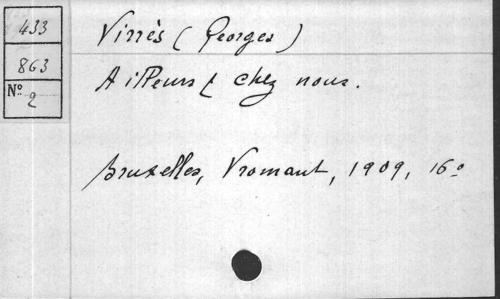 433
863
Nº 2
Virrès (Georges)
Ailleurs & chez nous.
Bruxelles, Vromant, 1909, 16º